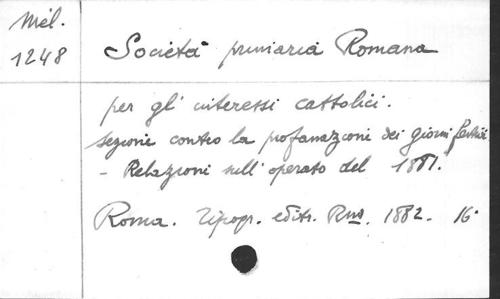 Mél.
1248
Società primaria Romana
per gl' interessi cattolici.
sezione contro la profanazione dei giorni festivi
- Relazioni sull' operato del 1881.
Roma. Tipogr. editr. Rom. 1882. 16°